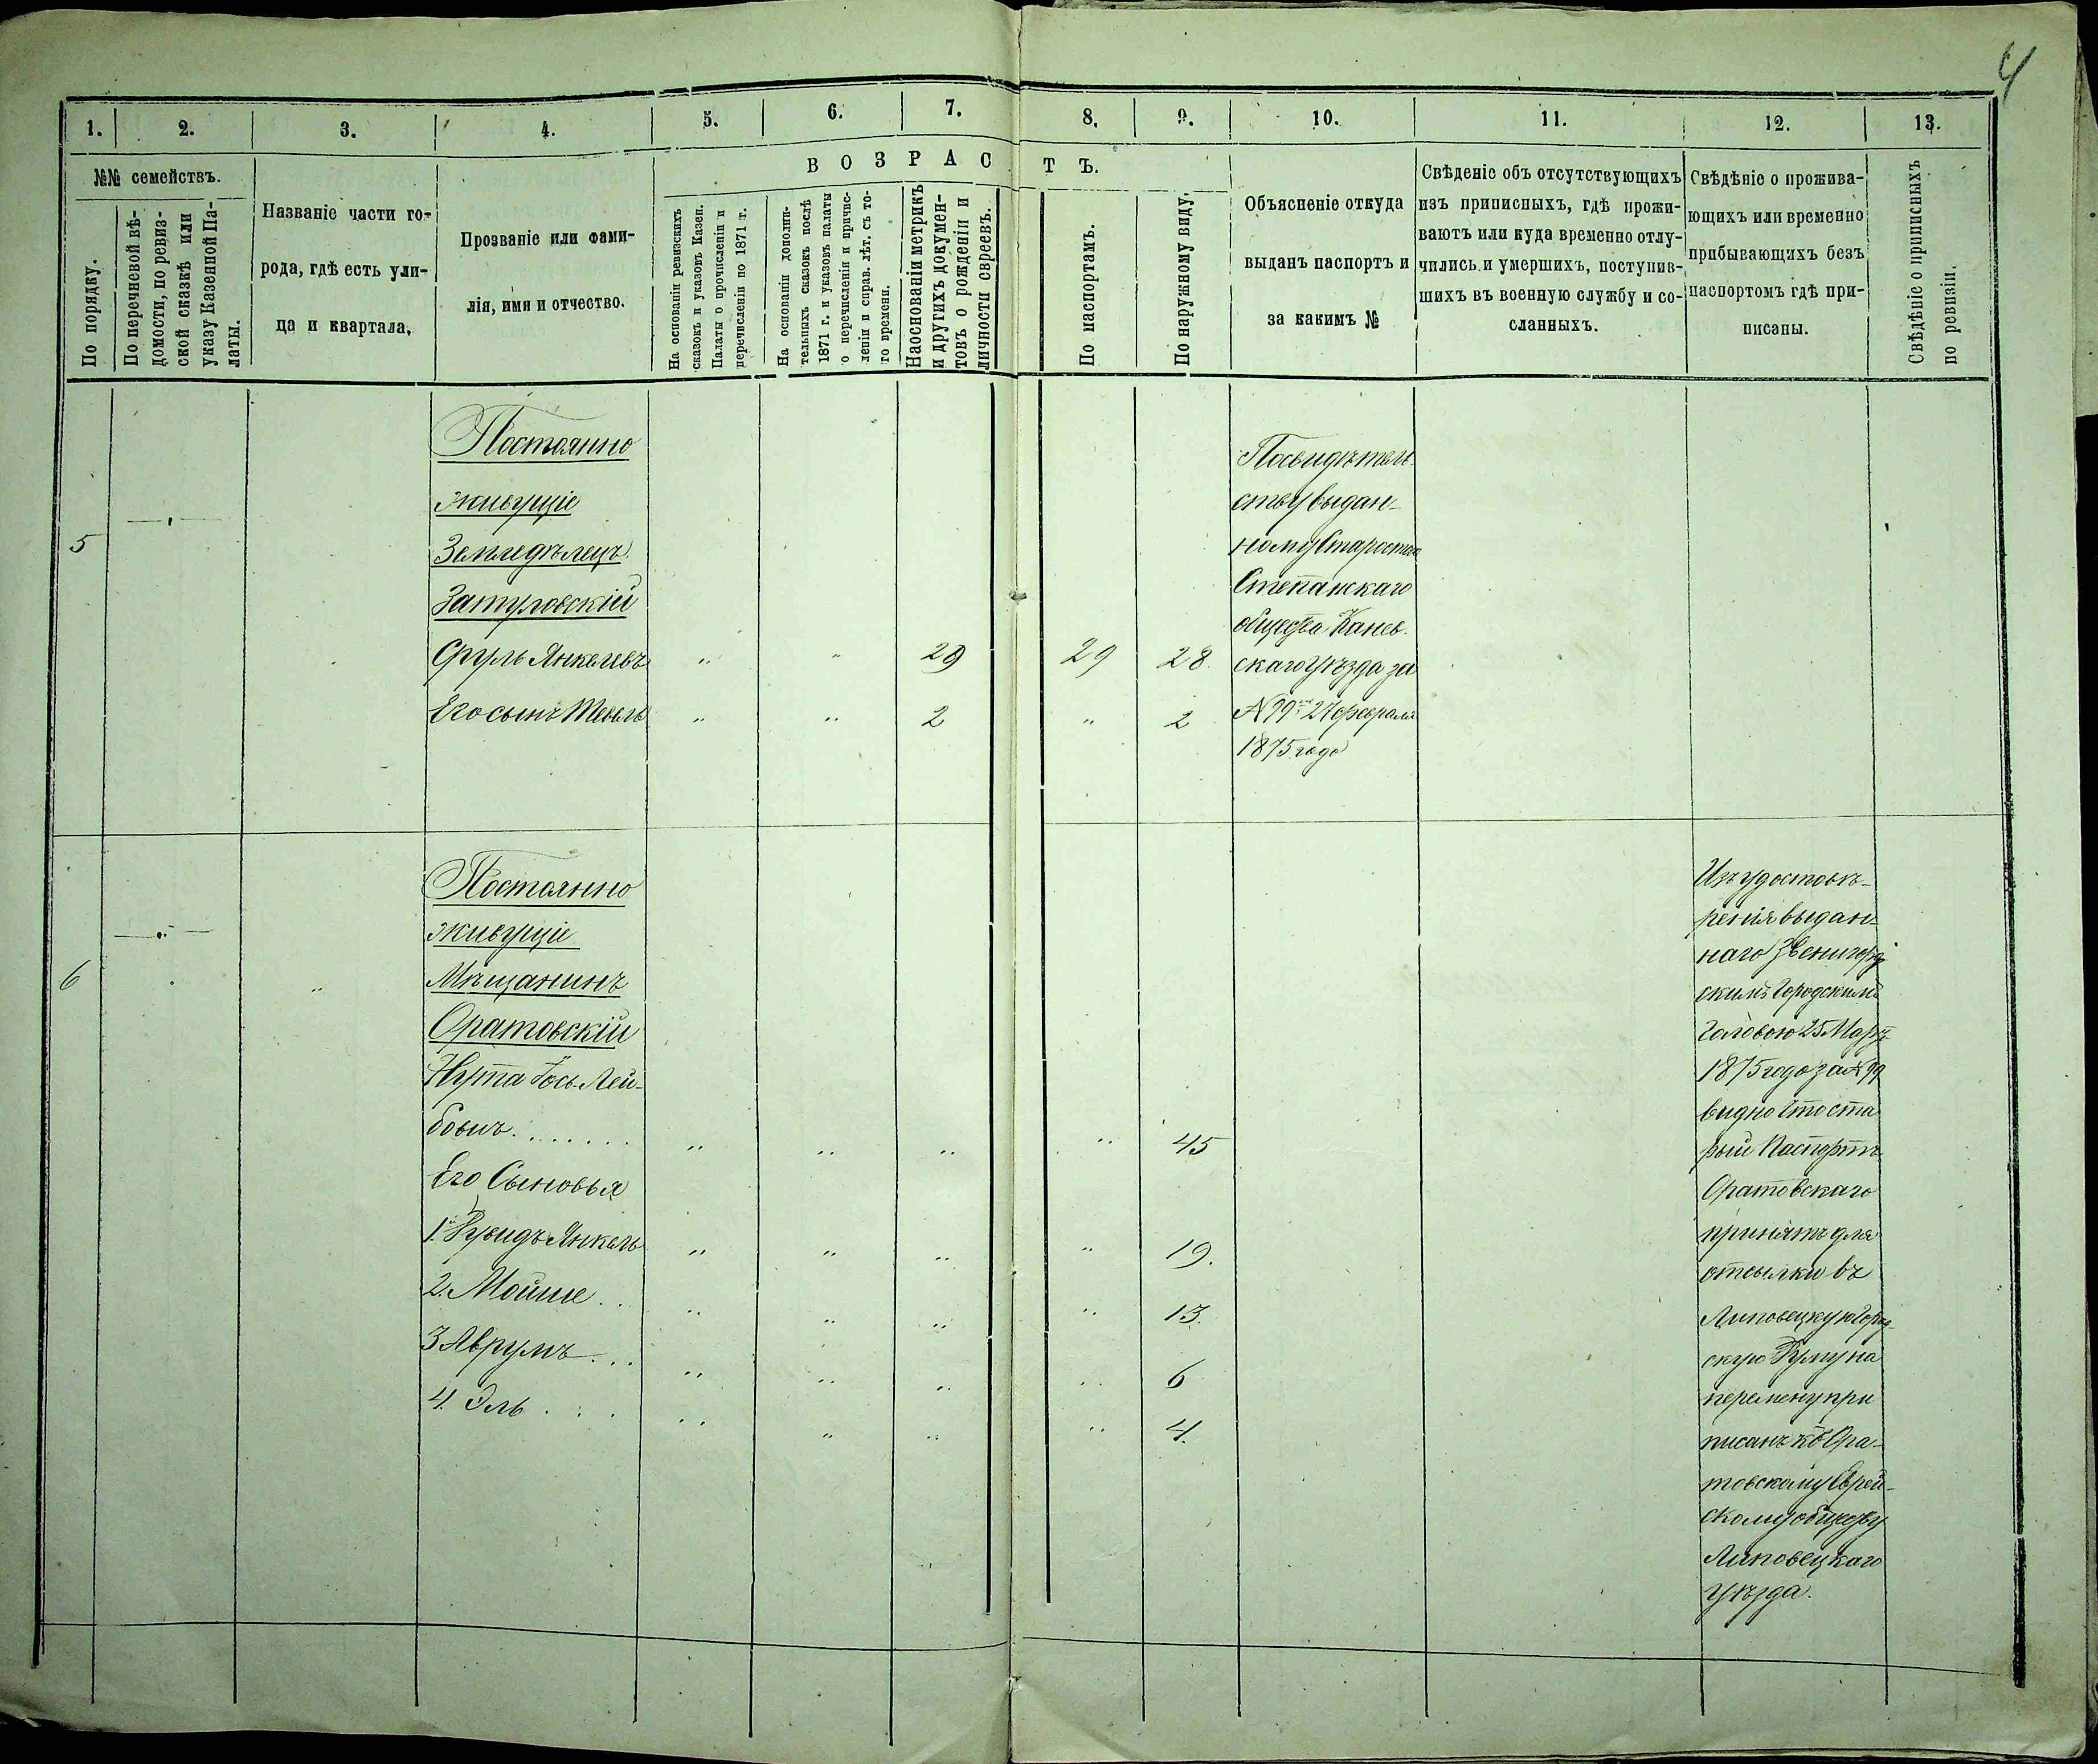 4
1. 2. 3. 4. 5. 6. 7. 8. 9. 10. 11. 12. 13.
№№ семействъ.
По порядку.
По перечневой вѣ-
домости, по ревиз-
ской сказкѣ или
указу Казенной Па-
латы.
Названіе части го-
рода, гдѣ есть ули-
ца и квартала,
Прозваніе или фами-
лія, имя и отчество.
ВОЗРАСТЪ.
На основаніи ревизскихъ
сказокъ и указовъ Казен.
Палаты о прочисленіи и
перечисленіи по 1871 г.
На основаніи дополни-
тельныхъ сказокъ послѣ
1871 г. и указовъ палаты
о перечисленіи и причис-
леніи и справ. лѣт. съ то-
го времени.
На основаніи метрикъ
и другихъ докумен-
товъ о рожденіи и
личности евреевъ.
По паспортамъ.
По наружному виду.
Объясненіе откуда
выданъ паспортъ и
за какимъ №
Свѣденіе объ отсутствующихъ
изъ приписныхъ, гдѣ прожи-
ваютъ или куда временно отлу-
чились и умершихъ, поступив-
шихъ въ военную службу и со-
сланныхъ.
Свѣдѣніе о прожива-
ющихъ или временно
прибывающихъ безъ
паспортомъ гдѣ при-
писаны.
Свѣдѣніе о приписныхъ
по ревизіи.
5
Постоянно
живущіе
Земледѣлецъ
Затуловскій
Сруль Янкелевъ " " 29 29 28.
Его сынъ Тевель " " 2 " 2
Посвидѣтель
ству выдан-
ному Старостою
Степанскаго
общества Канев-
скаго уѣзда за
№ 99 27 февраля
1875 года
6
Постоянно
живущіе
Мѣщанинъ
Оратовскій
Нута Іось-Лей-
бовичъ " " " " 45
Его Сыновья
1. Дувидъ Янкель " " " " 19.
2. Мойше " " " " 13.
3 Аврумъ " " " " 6
4. Эль " " " " 4.
Изъ удостовѣ-
ренія выдан-
наго Звенигород
скимъ Городскимъ
Головою 25 Марта
1875 года за № 99
видно что ста
рый Паспортъ
Оратовскаго
принятъ для
отсылки въ
Липовецкую Город
скую Думу на
перемену при
писанъ къ Ора-
товскому Еврей-
скому обществу
Липовецкаго
уѣзда.